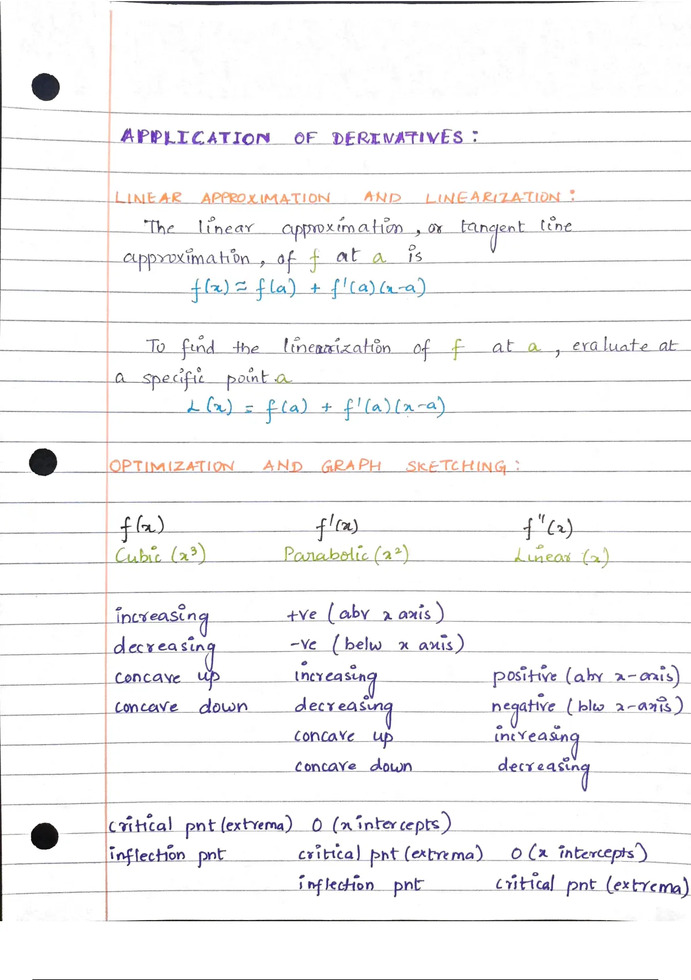 APPLICATION OF DERIVATIVES:
LINEAR APPROXIMATION AND LINEARIZATION:
The linear approximation, or tangent line
approximation, of f at a is
f(x) ≈ f(a) + f'(a)(x-a)
To find the linearization of f at a, evaluate at
a specific point a
L(x) = f(a) + f'(a)(x-a)
OPTIMIZATION AND GRAPH SKETCHING:
f(x) f'(x) f''(x)
Cubic (x³) Parabolic (x²) Linear (x)
increasing +ve (abv x axis)
decreasing -ve (belw x axis)
concave up increasing positive (abv x-axis)
concave down decreasing negative (blw x-axis)
concave up increasing
concave down decreasing
critical pnt (extrema) 0 (x intercepts)
inflection pnt critical pnt (extrema) 0 (x intercepts)
inflection pnt critical pnt (extrema)